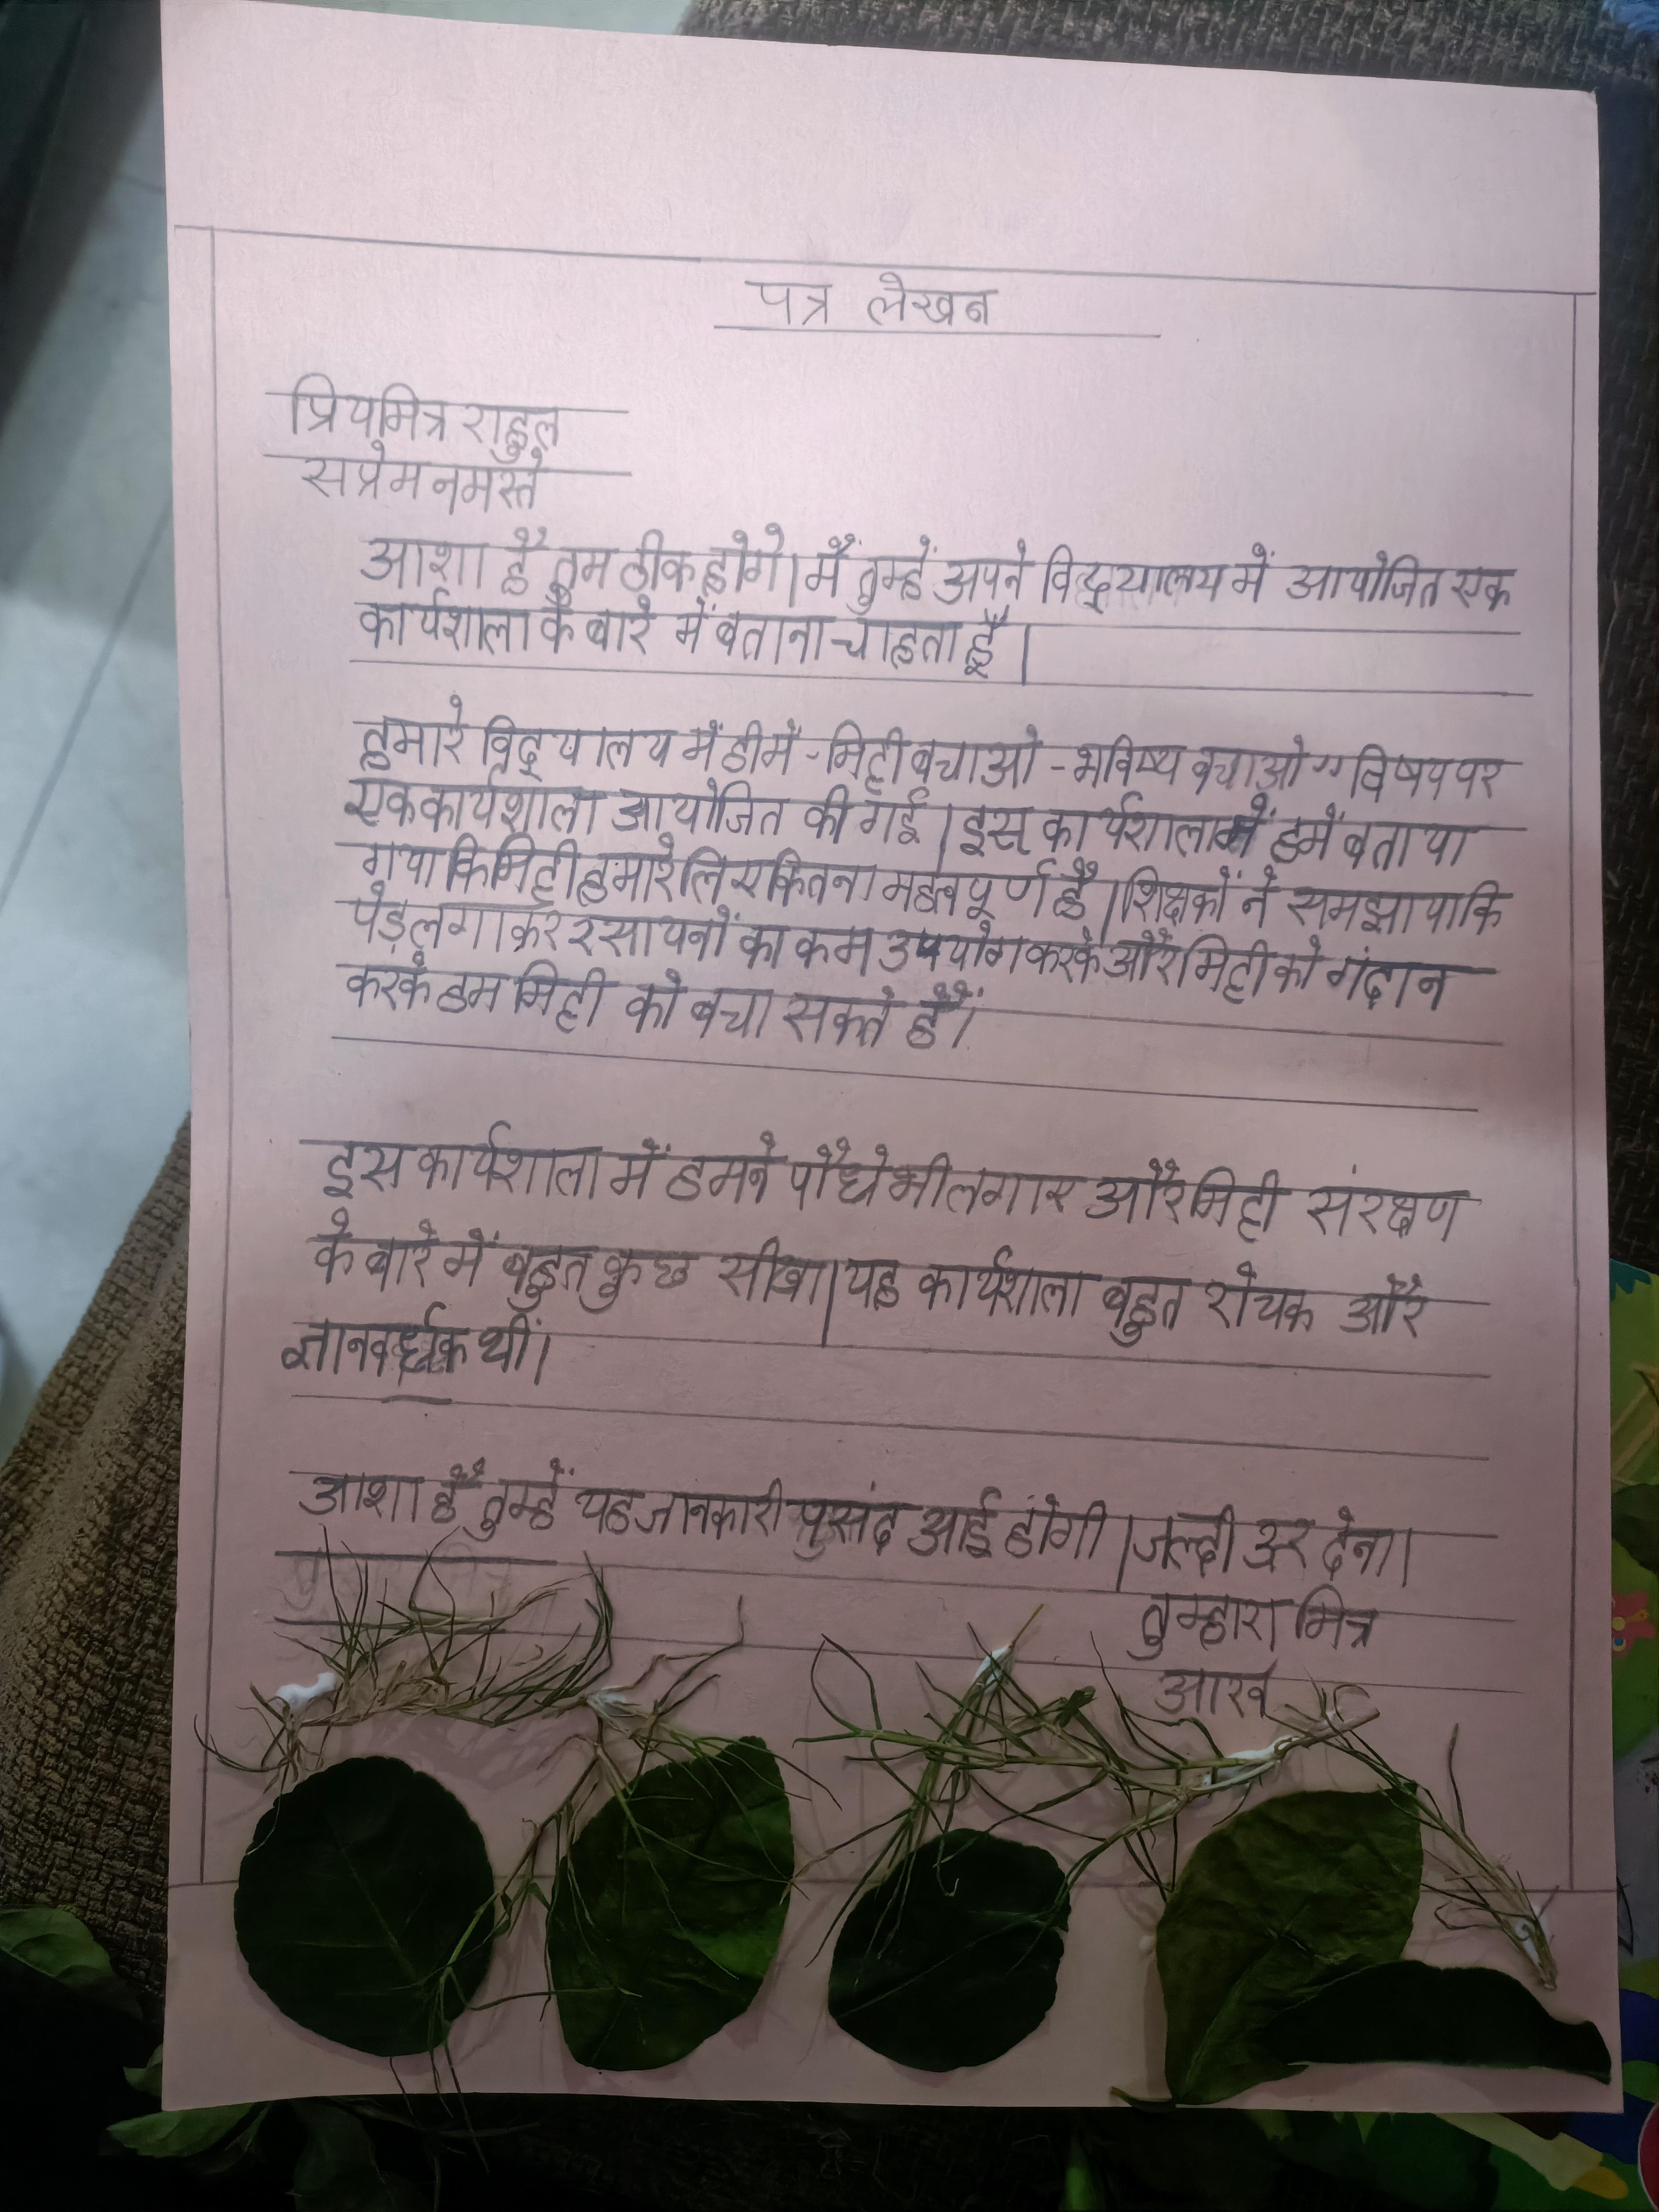 पत्र लेखन
प्रिय मित्र राहुल
सप्रेम नमस्ते
आशा है तुम ठीक होगे। मैं तुम्हें अपने विद्यालय में आयोजित एक
कार्यशाला के बारे में बताना चाहता हूँ।
हमारे विद्यालय में ही में - मिट्टी बचाओ - भविष्य बचाओ" विषय पर
एक कार्यशाला आयोजित की गई। इस कार्यशाला में हमें बताया
गया कि मिट्टी हमारे लिए कितना महत्वपूर्ण है। शिक्षकों ने समझाया कि
पेड़ लगाकर रसायनों का कम उपयोग करके और मिट्टी को गंदा न
करके हम मिट्टी को बचा सकते हैं।
इस कार्यशाला में हमने पौधे भी लगाए और मिट्टी संरक्षण
के बारे में बहुत कुछ सीखा। यह कार्यशाला बहुत रोचक और
ज्ञानवर्द्धक थीं।
आशा है तुम्हें यह जानकारी पसंद आई होगी। जल्दी देना।
तुम्हारा मित्र